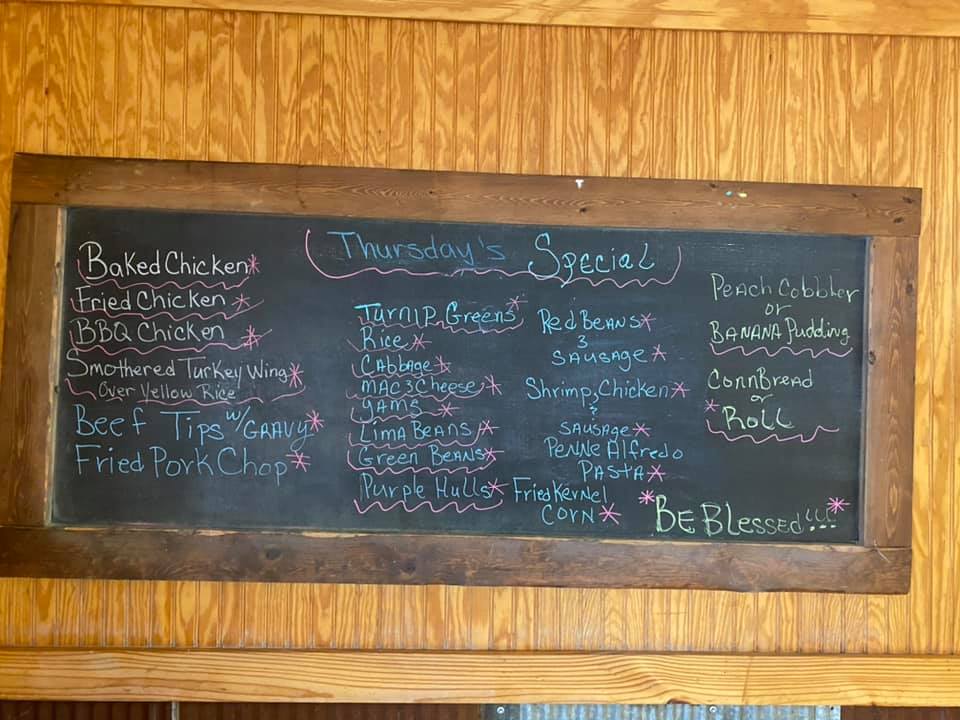 Thursday's Special
Baked Chicken*
Fried Chicken*
BBQ Chicken*
Smothered Turkey Wing*
Over Yellow Rice
Beef Tips w/ Gravy*
Fried Pork Chop*
Turnip Greens*
Rice*
Cabbage*
Mac & Cheese*
Yams*
Lima Beans*
Green Beans*
Purple Hulls*
Red Beans*
&
Sausage*
Shrimp, Chicken*
&
Sausage*
Penne Alfredo
Pasta*
Fried Kernel
Corn*
Peach Cobbler
or
Banana Pudding
CornBread
or
*Roll
*Be Blessed!!!*